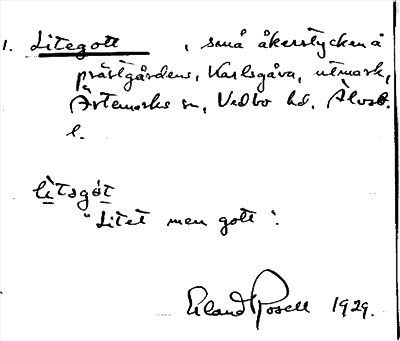 1. Litegott, små åkerstycken å
prästgårdens, Karlsgåva, utmark,
Ärtemarks sn, Vedbo hd. Älvsb.
l.
lìtəgót
"Litet men gott".
Erland Rosell 1929.